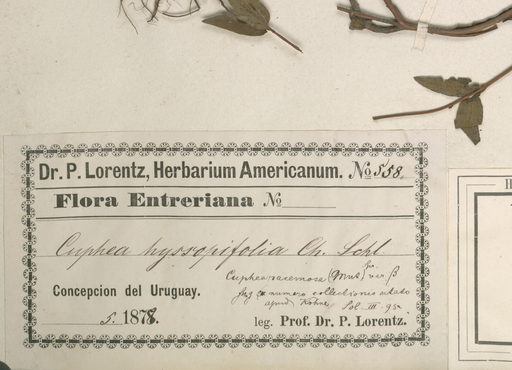 Dr. P. Lorentz, Herbarium Americanum. No 558.
Flora Entreriana No
Cuphea hyssopifolia Ch. Schl
Cuphea racemosa var β
ex numero collectionis citato
Concepcion del Uruguay.
apud Köhne III 95
5. 1878.
leg. Prof. Dr. P. Lorentz.
H